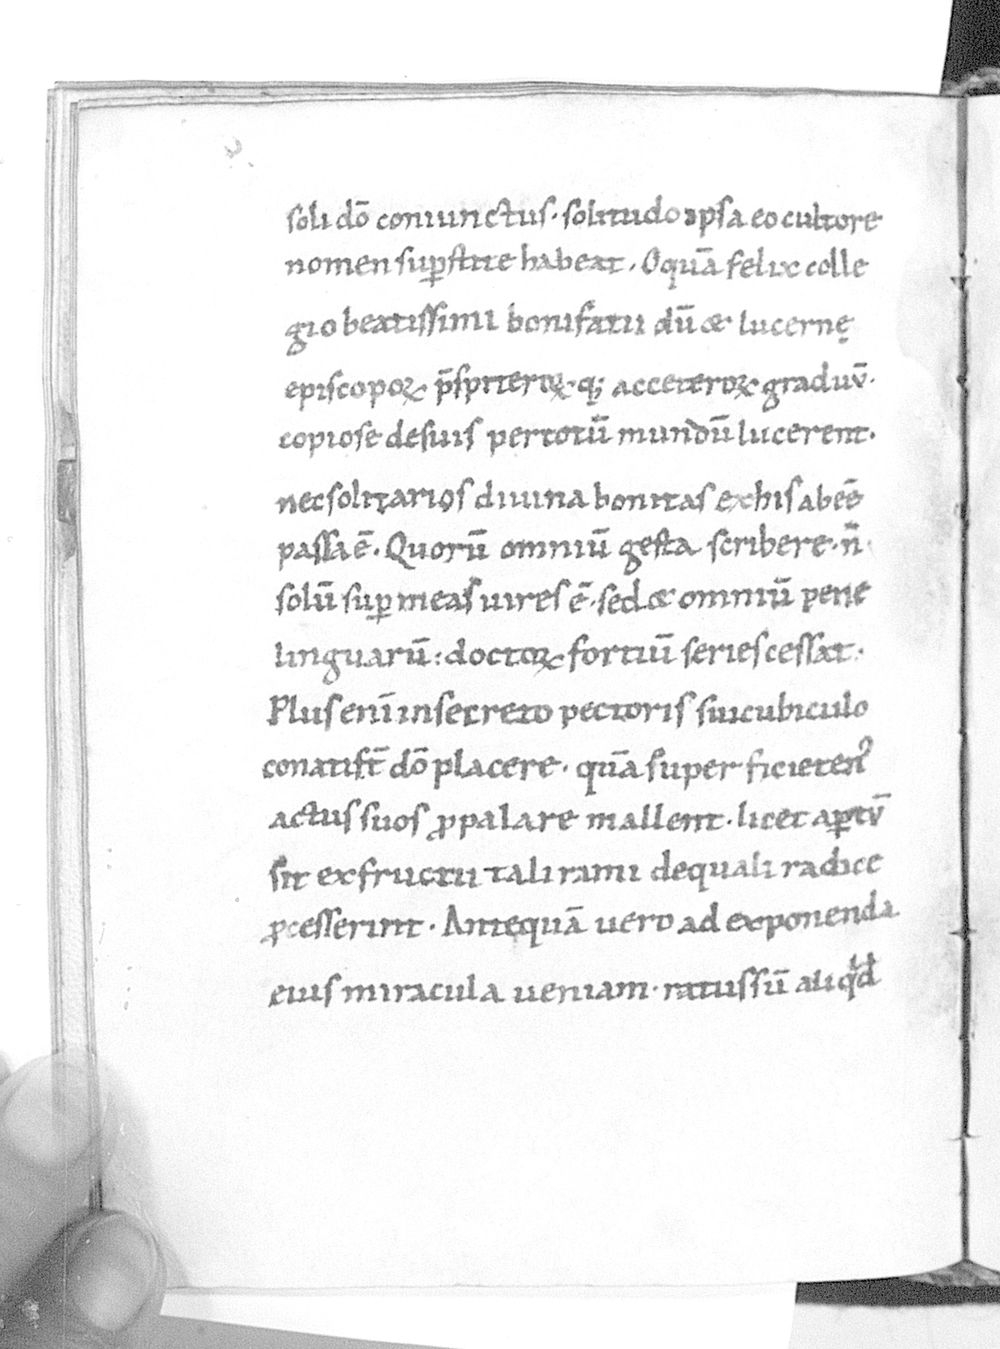 soli dō coniunctus. solitudo ipsa eo cultore
nomen suꝑstite habeat. O quā felix colle
gio beatissimi bonifatii dū & lucernę
episcopoꝝ p̄sƀiteroꝝ q; ceteroꝝ graduū.
copiose de suis per totū mundū lucerent.
nec solitarios diuina bonitas ex his abeē
passa ē. Quorū omniū gesta scribere. n̄
solū suꝑ meas uires ē. sed & omniū pene
linguarū: doctoꝝ fortiū series cessat.
Plus enī in secreto pectoris sui cubiculo
conati st̄ dō placere. quā super ficietenꝰ
actus suos ꝓpalare mallent. licet aꝑtū
sit ex fructu tali rami de quali radice
ꝓcesserint. Antequā uero ad exponenda
eius miracula ueniam. ratus sū aliqd